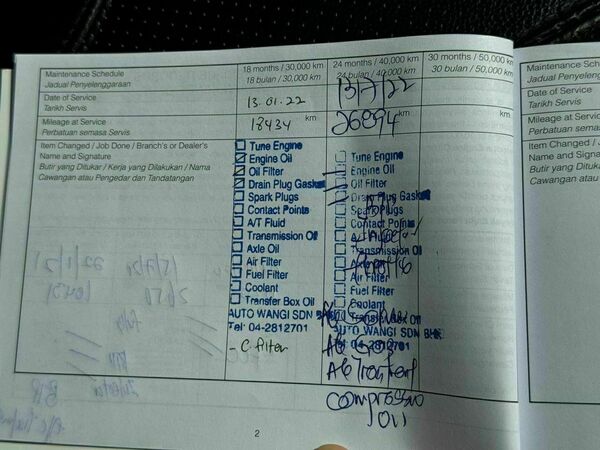 Maintenance Schedule
Jadual Penyelenggaraan
18 months / 30,000 km
18 bulan / 30,000 km
24 months / 40,000 km
24 bulan / 40,000 km
30 months / 50,000 km
30 bulan / 50,000 km
Date of Service
Tarikh Servis
13.01.22
13/7/22
Mileage at Service
Perbatuan semasa Servis
18434 km
26894 km
km
Item Changed / Job Done / Branch's or Dealer's
Name and Signature
Butir yang Ditukar / Kerja yang Dilakukan / Nama
Cawangan atau Pengedar dan Tandatangan
Tune Engine
Engine Oil
Oil Filter
Drain Plug Gasket
Spark Plugs
Contact Points
A/T Fluid
Transmission Oil
Axle Oil
Air Filter
Fuel Filter
Coolant
Transfer Box Oil
AUTO WANGI SDN BHD
Tel: 04-2812701
- C filter
Tune Engine
Engine Oil
Oil Filter
Drain Plug Gasket
Spark Plugs
Contact Points
Transmission Oil
Air Filter
Fuel Filter
Coolant
Transfer Box Oil
AUTO WANGI SDN BHD
Tel: 04-2812701
compressor
oil
2
Maintenance Sch
Jadual Penyeleng
Date of Service
Tarikh Servis
Mileage at Servic
Perbatuan sema
Item Changed /
Name and Signa
Butir yang Dituk
Cawangan atau